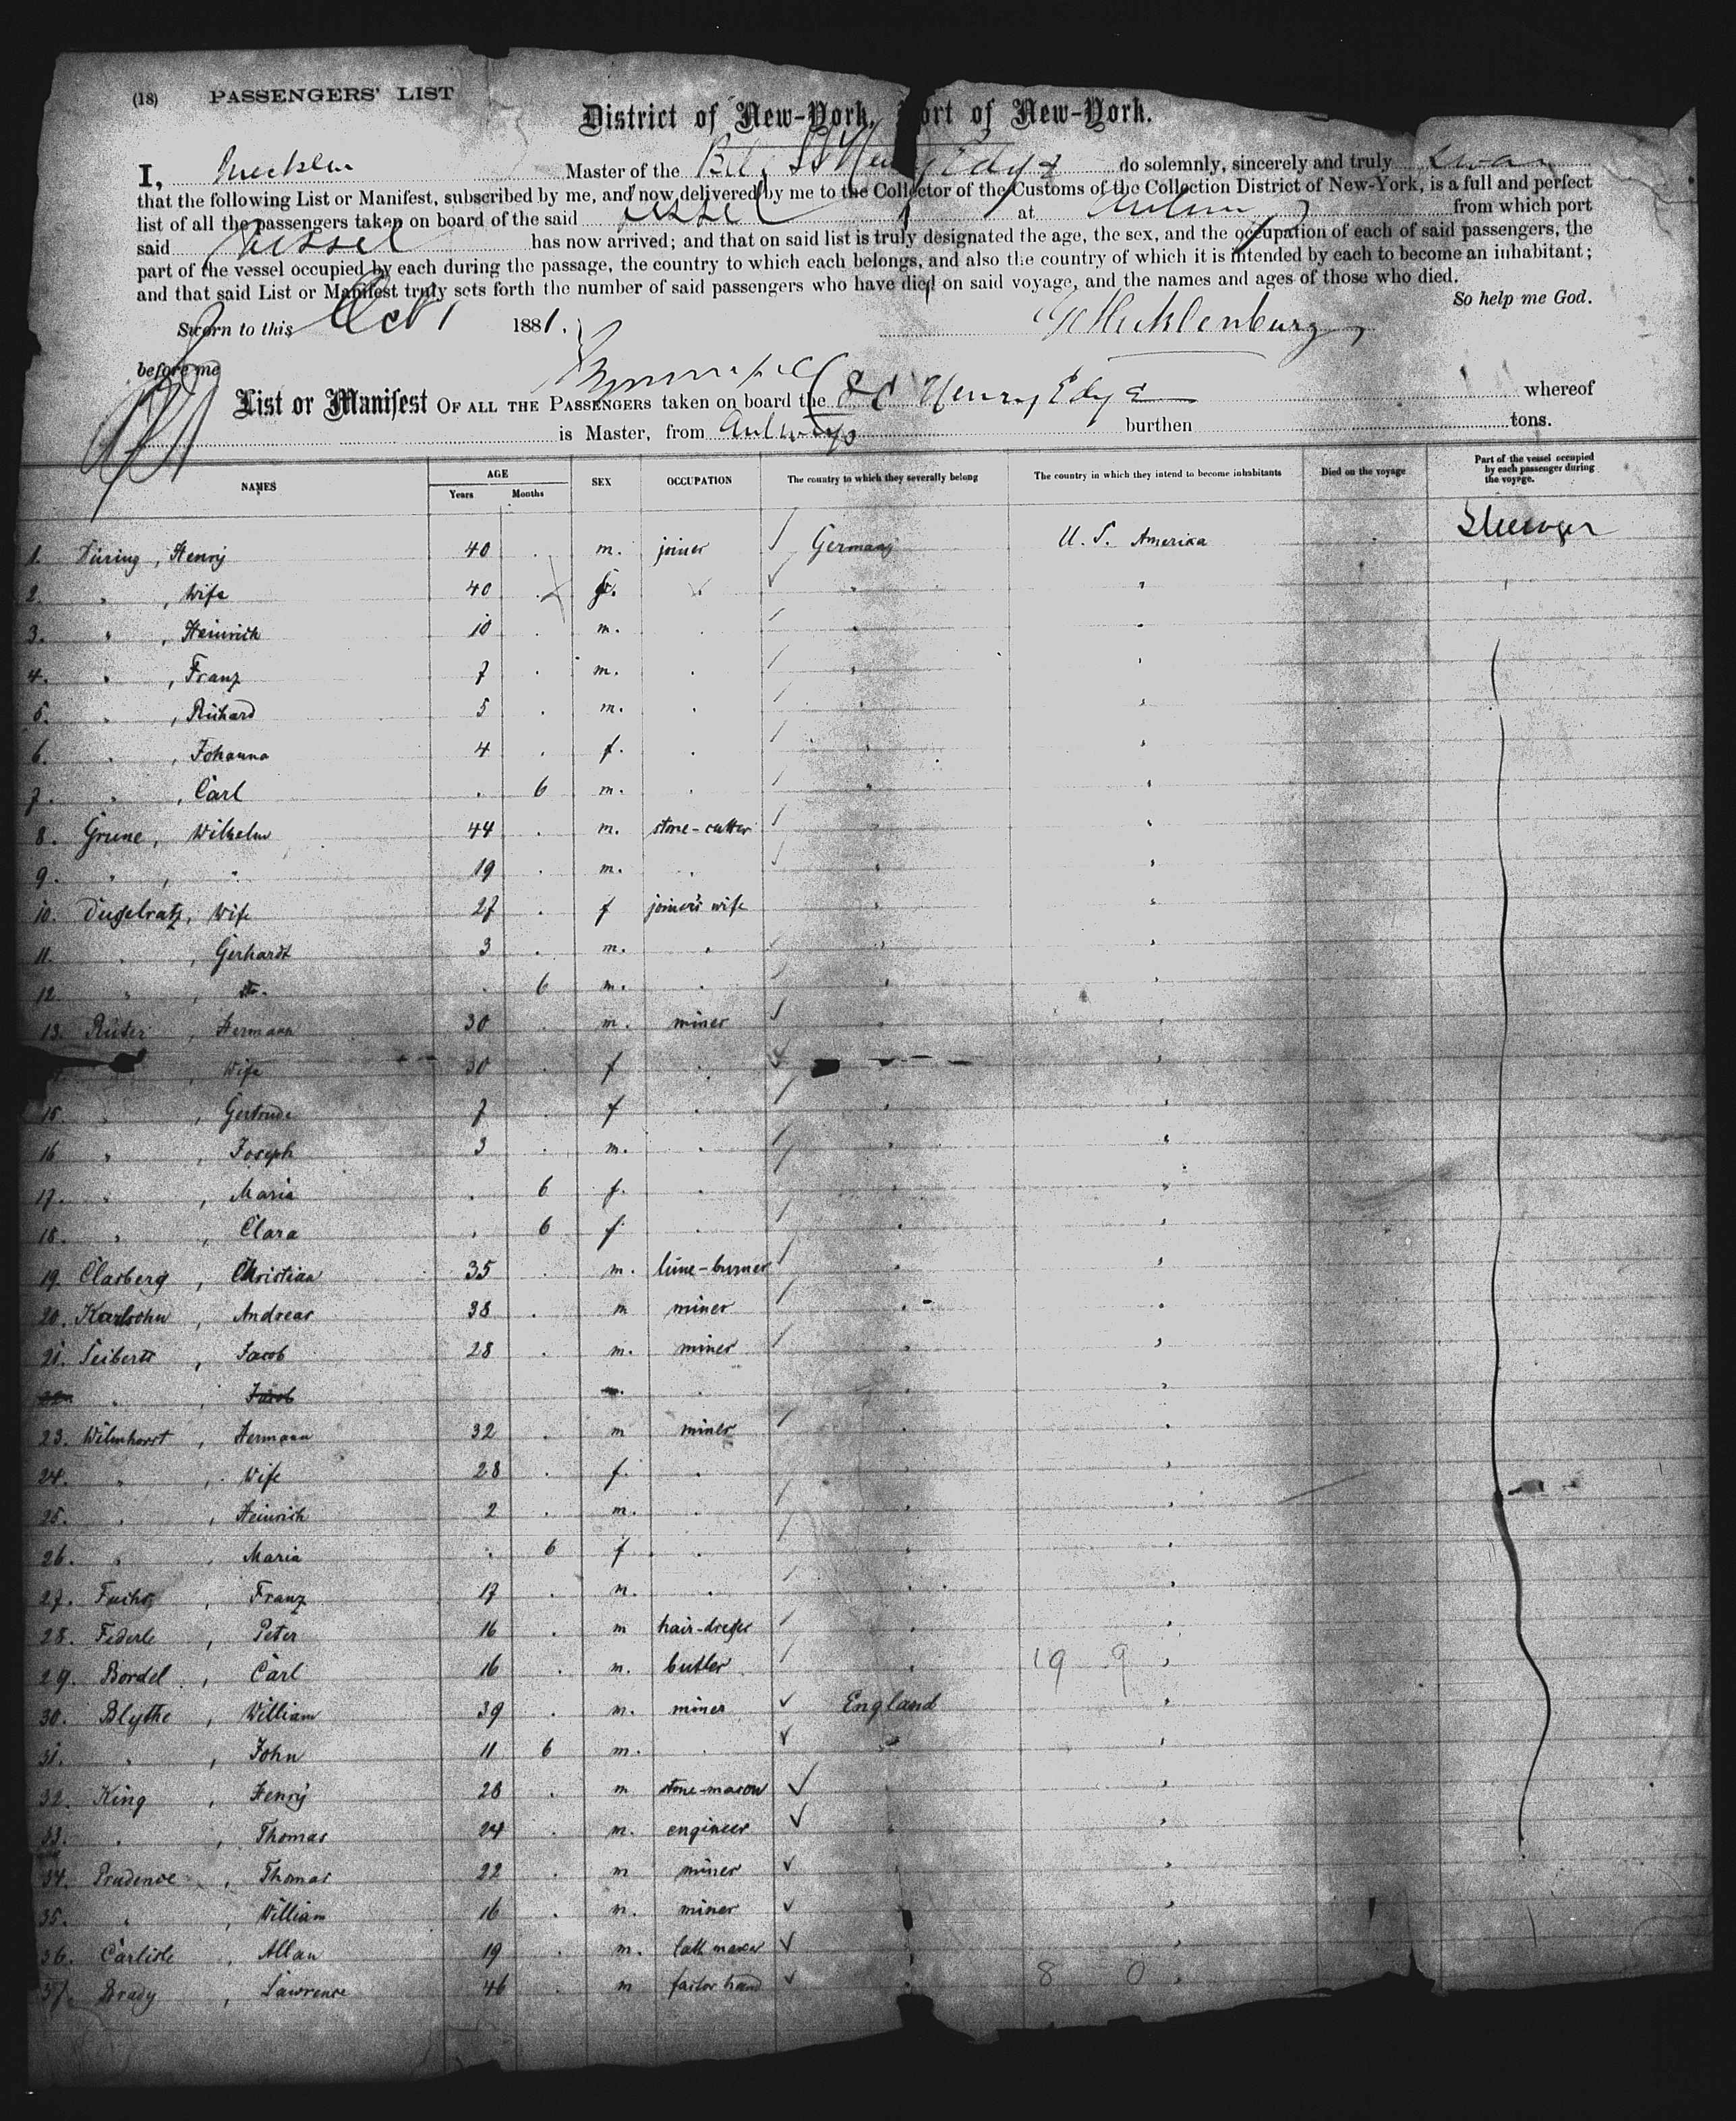 (18) PASSENGERS' LIST
District of New-York, Port of New-York.
I, Mecklen Master of the Ss Henry Edye do solemnly, sincerely and truly swear
that the following List or Manifest, subscribed by me, and now delivered by me to the Collector of the Customs of the Collection District of New-York, is a full and perfect
list of all the passengers taken on board of the said vessel at Antwerp from which port
said vessel has now arrived; and that on said list is truly designated the age, the sex, and the occupation of each of said passengers, the
part of the vessel occupied by each during the passage, the country to which each belongs, and also the country of which it is intended by each to become an inhabitant;
and that said List or Manifest truly sets forth the number of said passengers who have died on said voyage, and the names and ages of those who died.
So help me God.
Sworn to this Oct 1 1881.
Mecklenburg
before me
List or Manifest OF ALL THE PASSENGERS taken on board the SS Henry Edye whereof
is Master, from Antwerp burthen tons.
NAMES AGE Years Months SEX OCCUPATION The country to which they severally belong The country in which they intend to become inhabitants Died on the voyage Part of the vessel occupied by each passenger during the voyage.
1. Düring, Henry 40 . m. joiner Germany U. S. Amerika Steerage
2. " , Wife 40 . f. . " "
3. " , Heinrich 10 . m. . " "
4. " , Franz 7 . m. . " "
5. " , Richard 5 . m. . " "
6. " , Johanna 4 . f. . " "
7. " , Carl . 6 m. . " "
8. Grune, Wilhelm 44 . m. stone-cutter " "
9. " , " 19 . m. . " "
10. Dugelratz, Wife 27 . f joiner's wife " "
11. " , Gerhardt 3 . m. " " "
12. " , . 6 m. . " "
13. Rüter , Hermann 30 . m. miner " "
" , Wife 30 . f . "
15. " , Gertrude 7 . f . " "
16 " , Joseph 3 . m. . " "
17. " , Maria . 6 f. . " "
18. " , Clara . 6 f . " "
19. Clasberg , Christian 35 . m. lime-burner " "
20. Karlsohn , Andreas 38 . m miner " "
21. Seibertt , Jacob 28 . m. miner " "
22. " , Jacob m. . " "
23. Wilmhorst , Hermann 32 . m miner " "
24. " , Wife 28 . f. . " "
25. " , Heinrich 2 . m. . " "
26. " , Maria . 6 f . " "
27. Fuchs , Franz 17 . m. . " "
28. Federle , Peter 16 . m hair-dreßer " "
29. Bordel , Carl 16 . m. butler " 19 9 "
30. Blythe , William 39 . m. miner England "
31. " , John 11 6 m. . " "
32. King , Henry 28 . m stone-mason "
33. " , Thomas 24 . m. engineer " "
34. Prudence , Thomas 22 . m miner " "
35. " , William 16 . m. miner "
36. Carlisle , Allan 19 . m. "
37. Brady , Lawrence 46 . m hand " 8 0 "